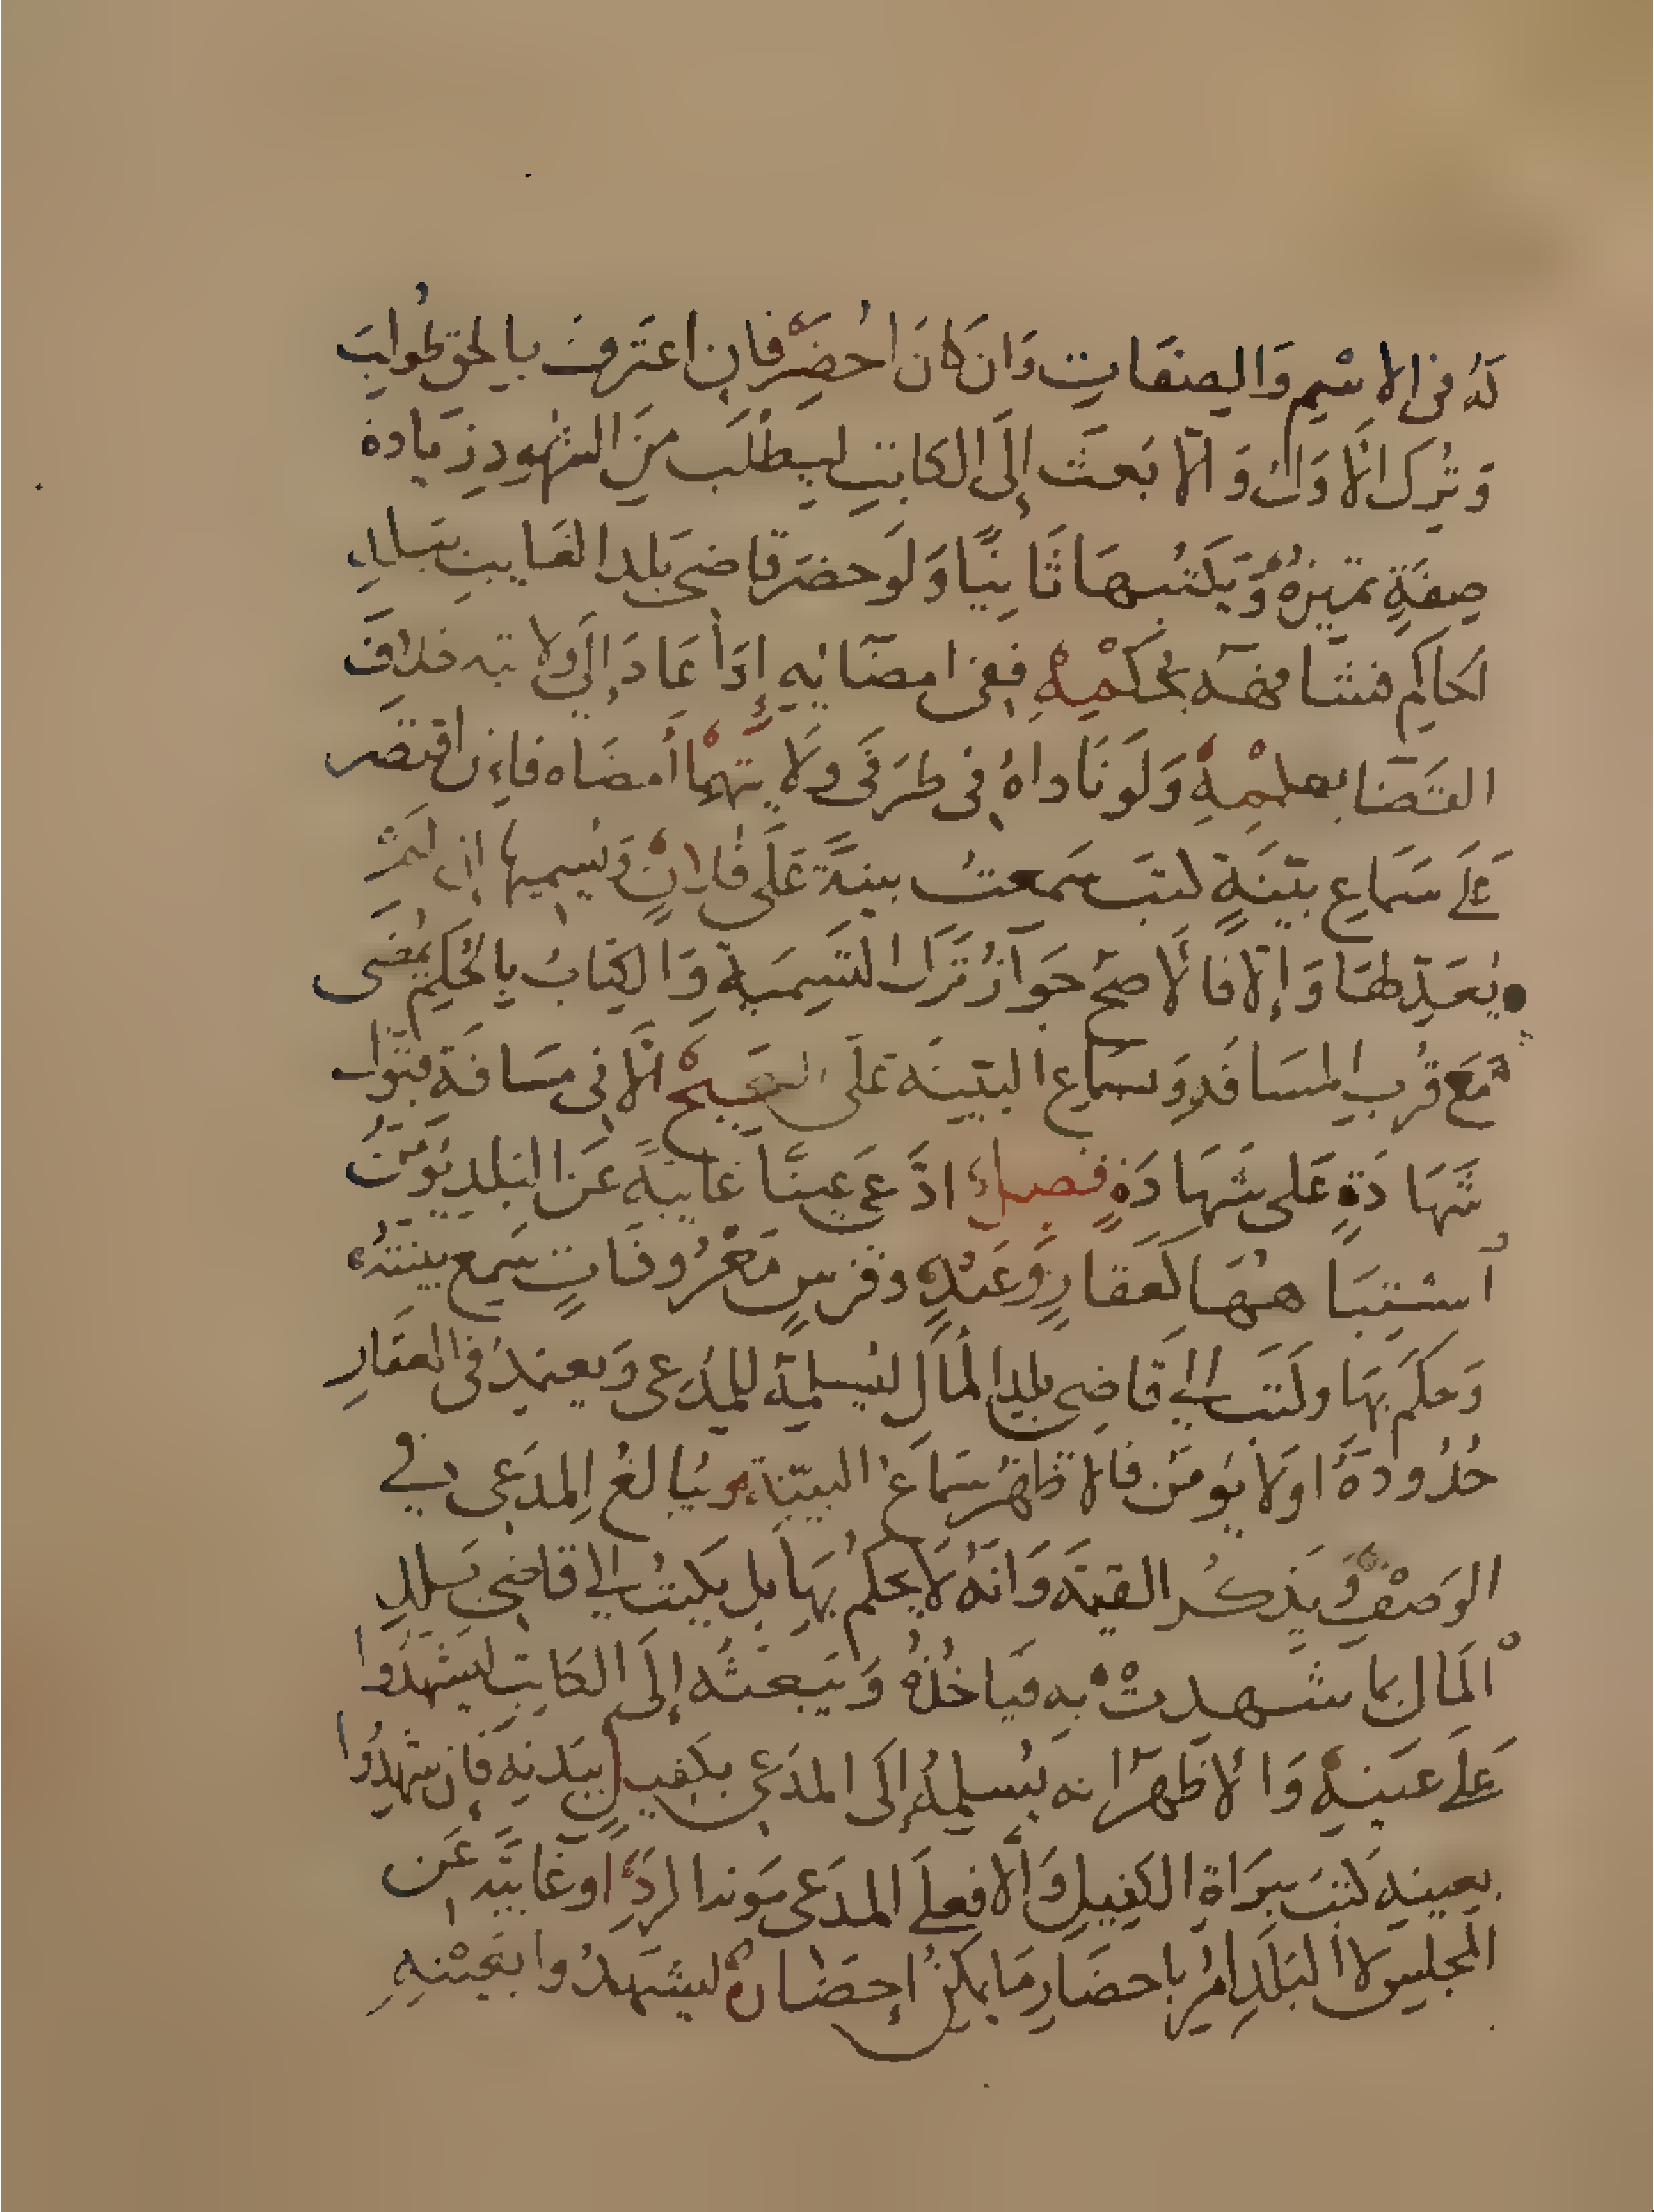 لَهُ فى الاسْمِ وَالصِفَاتِ وَان كَانَ احُضِرَ فان اعتَرف بالحق طُولِبَ
وَتُرِكَ الاَوَّل وَالّا بَعثَ إلَى الكَاتبِ ليطلَب مِنَ الشهُودِ زيَادة
صِفَةٍ تميّزهُ وَيَكتبهَا ثَانيًا وَلَو حضَر قاضى بَلد الغَايبِ ببَلدِ
الحَاكِم فشافهَه بحُكمِهِ ففى امضَائِهِ إذَا عَادَ إلَى ولايته خلافَ
القَضَا بعلمِهِ وَلَو نَاداهُ فى طرَفَى ولَايتهمَا أمضَاه فإن اقتصَر
عَلَى سَمَاعِ بيّنَةٍ كتبَ سَمعتُ بينةً عَلَى فلانٍ وَيُسميهَا إن لم
يُعَدِّلهَا وَإلّا فالاصحّ جَوَازُ تَرْك التسمِيَةِ وَالكِتابُ بالحُكمِ يمُضى
مَعَ قُربِ المسَافَةِ وَسماع البيّنَة عَلَى الصَحِيحْ الّا فى مسَافَة قبَول
شَهَادَةٍ عَلى شهَادَةٍ فصل ادّعَى عينًا غايبَةً عَن البَلد يُومَنُ
اشتِبَاهُهَا كَعَقارٍ وَعَبْدٍ وَفرَسٍ مَعْرُوفَاتٍ سَمع بيّنتَهُ
وَحكَم بهَا وكَتَب الى قَاضى بلد المَال ليُسلمهُ للمُدَعى وَيعتمدُ فى العقَارِ
حُدُودَهُ اولَا يُومَنُ فالاظهَرُ سَمَاعُ البيّنَةِ وَيُبَالغُ المدَعِى فى
الوَصْفِ وَيَذكُر القيمَة وَانّهُ لَا يحكُم بهَا بَل يَكتبُ الى قاضى بَلدِ
المَال بمَا شهدتْ به فيَاخُذُهُ وَيَبعَثُه إلَى الكاتِب ليَشهَدُوا
عَلَى عَينِهِ وَالاظهَرُ انه يُسلمُهُ إلَى المدَعِى بكَفِيلٍ ببَدنِهِ فَإن شهِدُوا
بِعينِهِ كَتبَ ببَرَاةِ الكَفِيلِ وَالّا فعلَى المدَعى مَونة الردّ او غَايبَة عَن
المجلِسِ لا البَلَدِ امُر بإحضَارِ مَا يمكنُ إحضَارهُ ليَشهدُوا بعَيْنِهِ